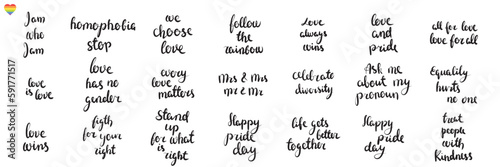 I am
who
I am
homophobia
stop
we
choose
love
follow
the
rainbow
love
always
wins
love
and
pride
all for love
love for all
love
is love
love
has no
gender
every
love
matters
Mrs & Mrs
mr & Mr
celebrate
diversity
Ask me
about my
pronoun
Equality
hurts
no one
love
wins
figth
for your
right
Stand
up
for what
is right
Happy
pride
day
life gets
better
together
Happy
pride
day
treat
people
with
Kindness
591771517